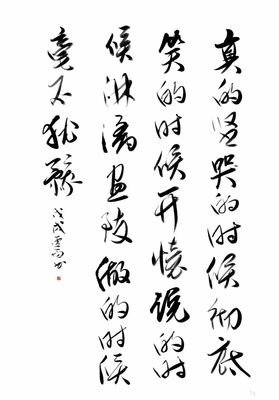 真的坚哭的时候彻底
笑的时候开怀说的时
候淋漓尽致做的时候
毫不犹豫
戊戌